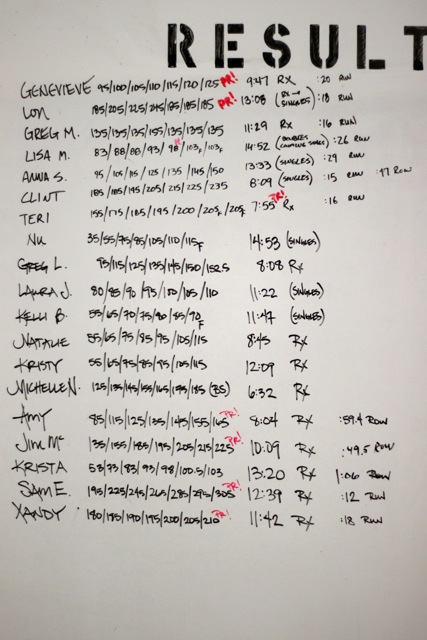 RESULT
GENEVIEVE 95/100/105/110/115/120/125 PR! 9:47 RX :20 RUN
LON 185/205/225/245/185/185/185 PR! 13:08 (RX→ SINGLES) :18 RUN
GREG M. 135/135/135/155/135/135/135 11:29 RX :16 RUN
LISA M. 83/88/88/93/98/103F/103F 14:52 :26 ROW
ANNA S. 95/105/115/125/135/145/150 13:33 (SINGLES) :29 RUN
CLINT 185/185/195/205/215/225/235 8:09 (SINGLES) :15 RUN :47 ROW
TERI 155/175/185/195/200/205F/205F 7:55 PR! RX :16 RUN
NU 35/55/75/85/105/110/115F 14:53 (SINGLES)
GREG L. 95/115/125/135/145/150/152.5 8:08 RX
LAURA J. 80/85/90/95/100/105/110 11:22 (SINGLES)
KELLI B. 55/65/70/75/80/85/90F 11:47 (SINGLES)
NATALIE 55/65/75/85/95/105/115 8:45 RX
KRISTY 55/65/75/85/95/105/115 12:09 RX
MICHELLE N. 125/135/145/155/165/175/185 (BS) 6:32 RX
AMY 85/115/125/135/145/155/165 PR! 8:04 RX :59.4 ROW
JIM MC 135/155/185/195/205/215/225 PR! 10:09 RX :49.5 ROW
KRISTA 53/73/83/93/98/100.5/103 13:20 RX 1:06 ROW
SAM E. 195/225/245/265/285/295/305 PR! 12:39 RX :12 RUN
XANDY 180/185/190/195/200/205/210 PR! 11:42 RX :18 RUN